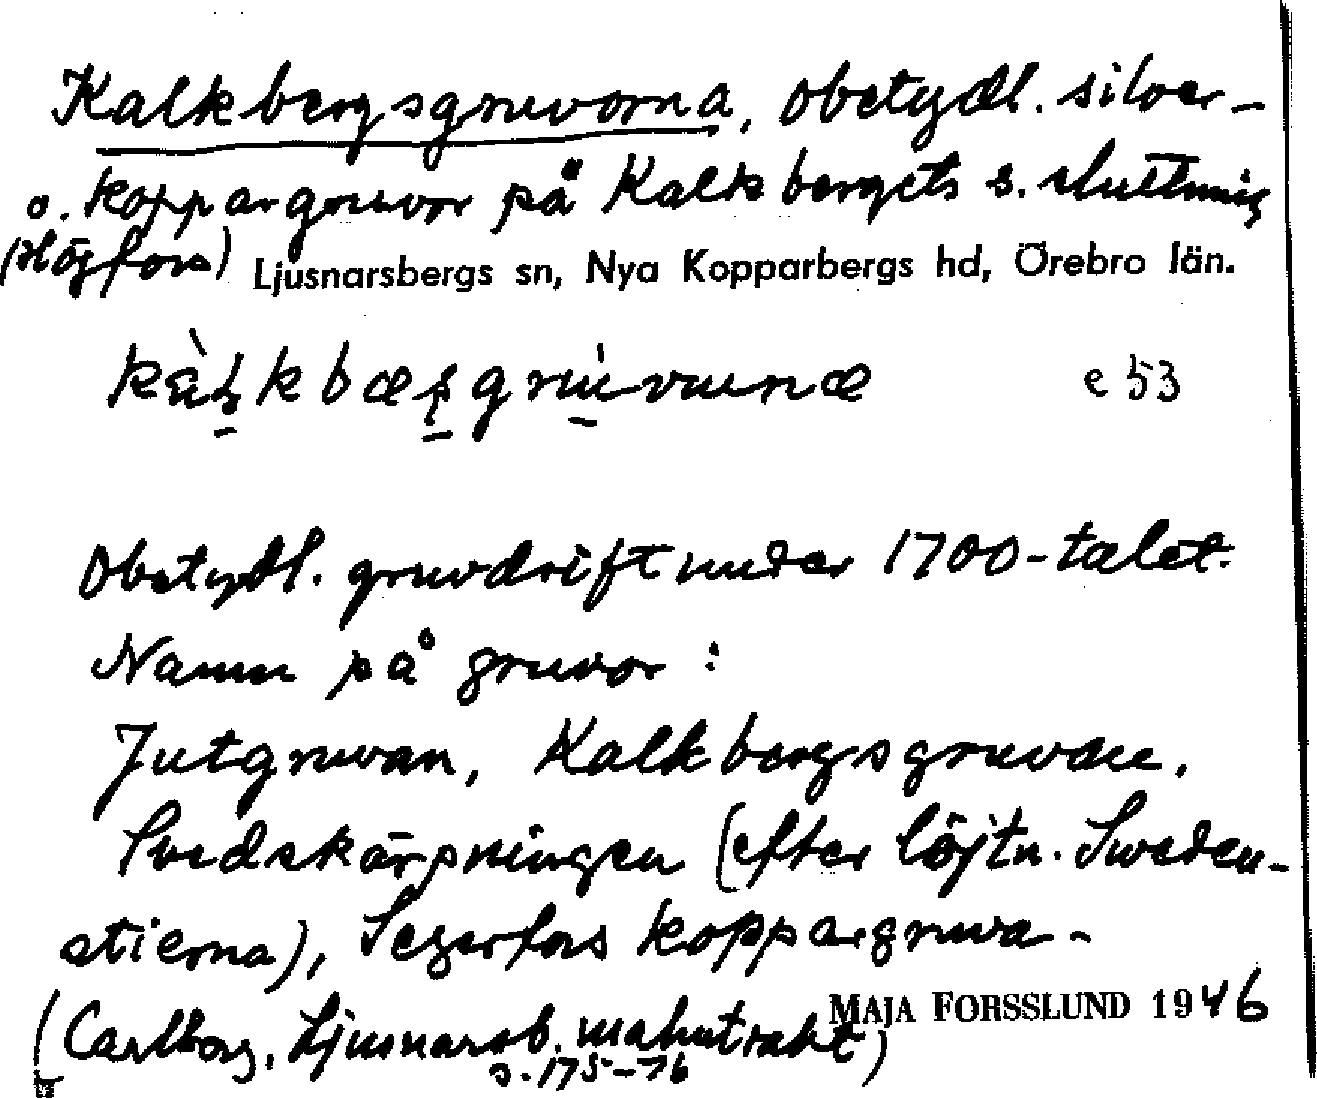 Kalkbergsgruvorna, obetydl. silver-
o. koppargruvor på Kalkbergets s. sluttning
(Högfors) Ljusnarsbergs sn, Nya Kopparbergs hd, Örebro län.
e 53
Obetydl. gruvdrift under 1700-talet.
Namn på gruvor:
Jutgruvan, Kalkbergsgruvan,
Svedskärpningen (efter löjtn. Sweden-
stierna), Segerfors koppargruva-
MAJA FORSSLUND 1946
(Carlborg, Ljusnarsb. malmtrakt)
s. 175-76